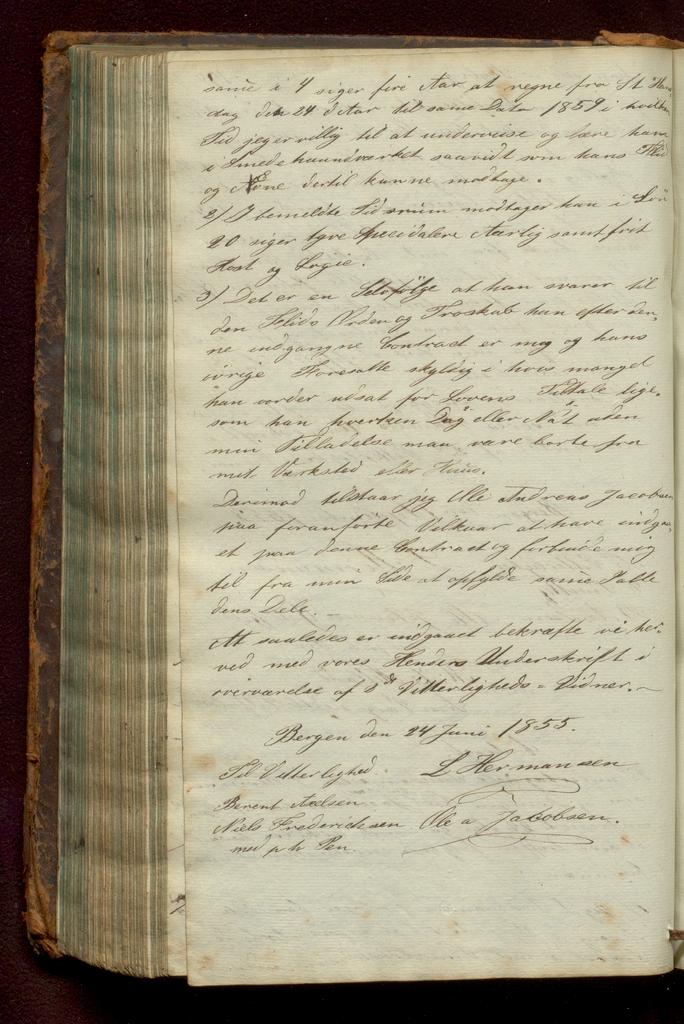 samme i 4 siger fire Aar at regne fra St Hans
dag den 24 d Aar til same Dato 1859 i hvilken
Tid jeg er villig til at underviise og lære ham
i Smedehaandværket saavidt som hans Flid
og Evne dertil kunne modtage.
2/ I bemeldte Tidsrum modtager han i Løn
20 siger tyve Speciedalere Aarlig samt frit
Kost og Logie.
3/ Det er en Selvfölge at han svarer til
den Flids Orden og Troskab han efter den,,
ne indgangne Contract er mig og hans
övrige Foresatte skyldig i hvis mangel
han vorder udsat for Lovens Tiltale lige,
som han hverken Dag eller Nat uden
min Tilladelse maa være borte fra
mit Værksted eller Huus.
Derimod tilstaar jeg Ole Andreas Jacobsen
paa foranførte Vilkaar at have indgaa,
et paa denne Contract og forbinde mig
til fra min Side at opfylde same i alle
dens Dele. –
At saaledes er indgaaet bekræfte vi her,
ved med vores Henders Underskrift i
overværelse af 2de Vitterligheds = Vidner. –
Bergen den 24 Juni 1855.
Til Vitterlighed. L Hermansen
Berent
Niels Fredericksen Ole a Jacobsen.
med p h Pen